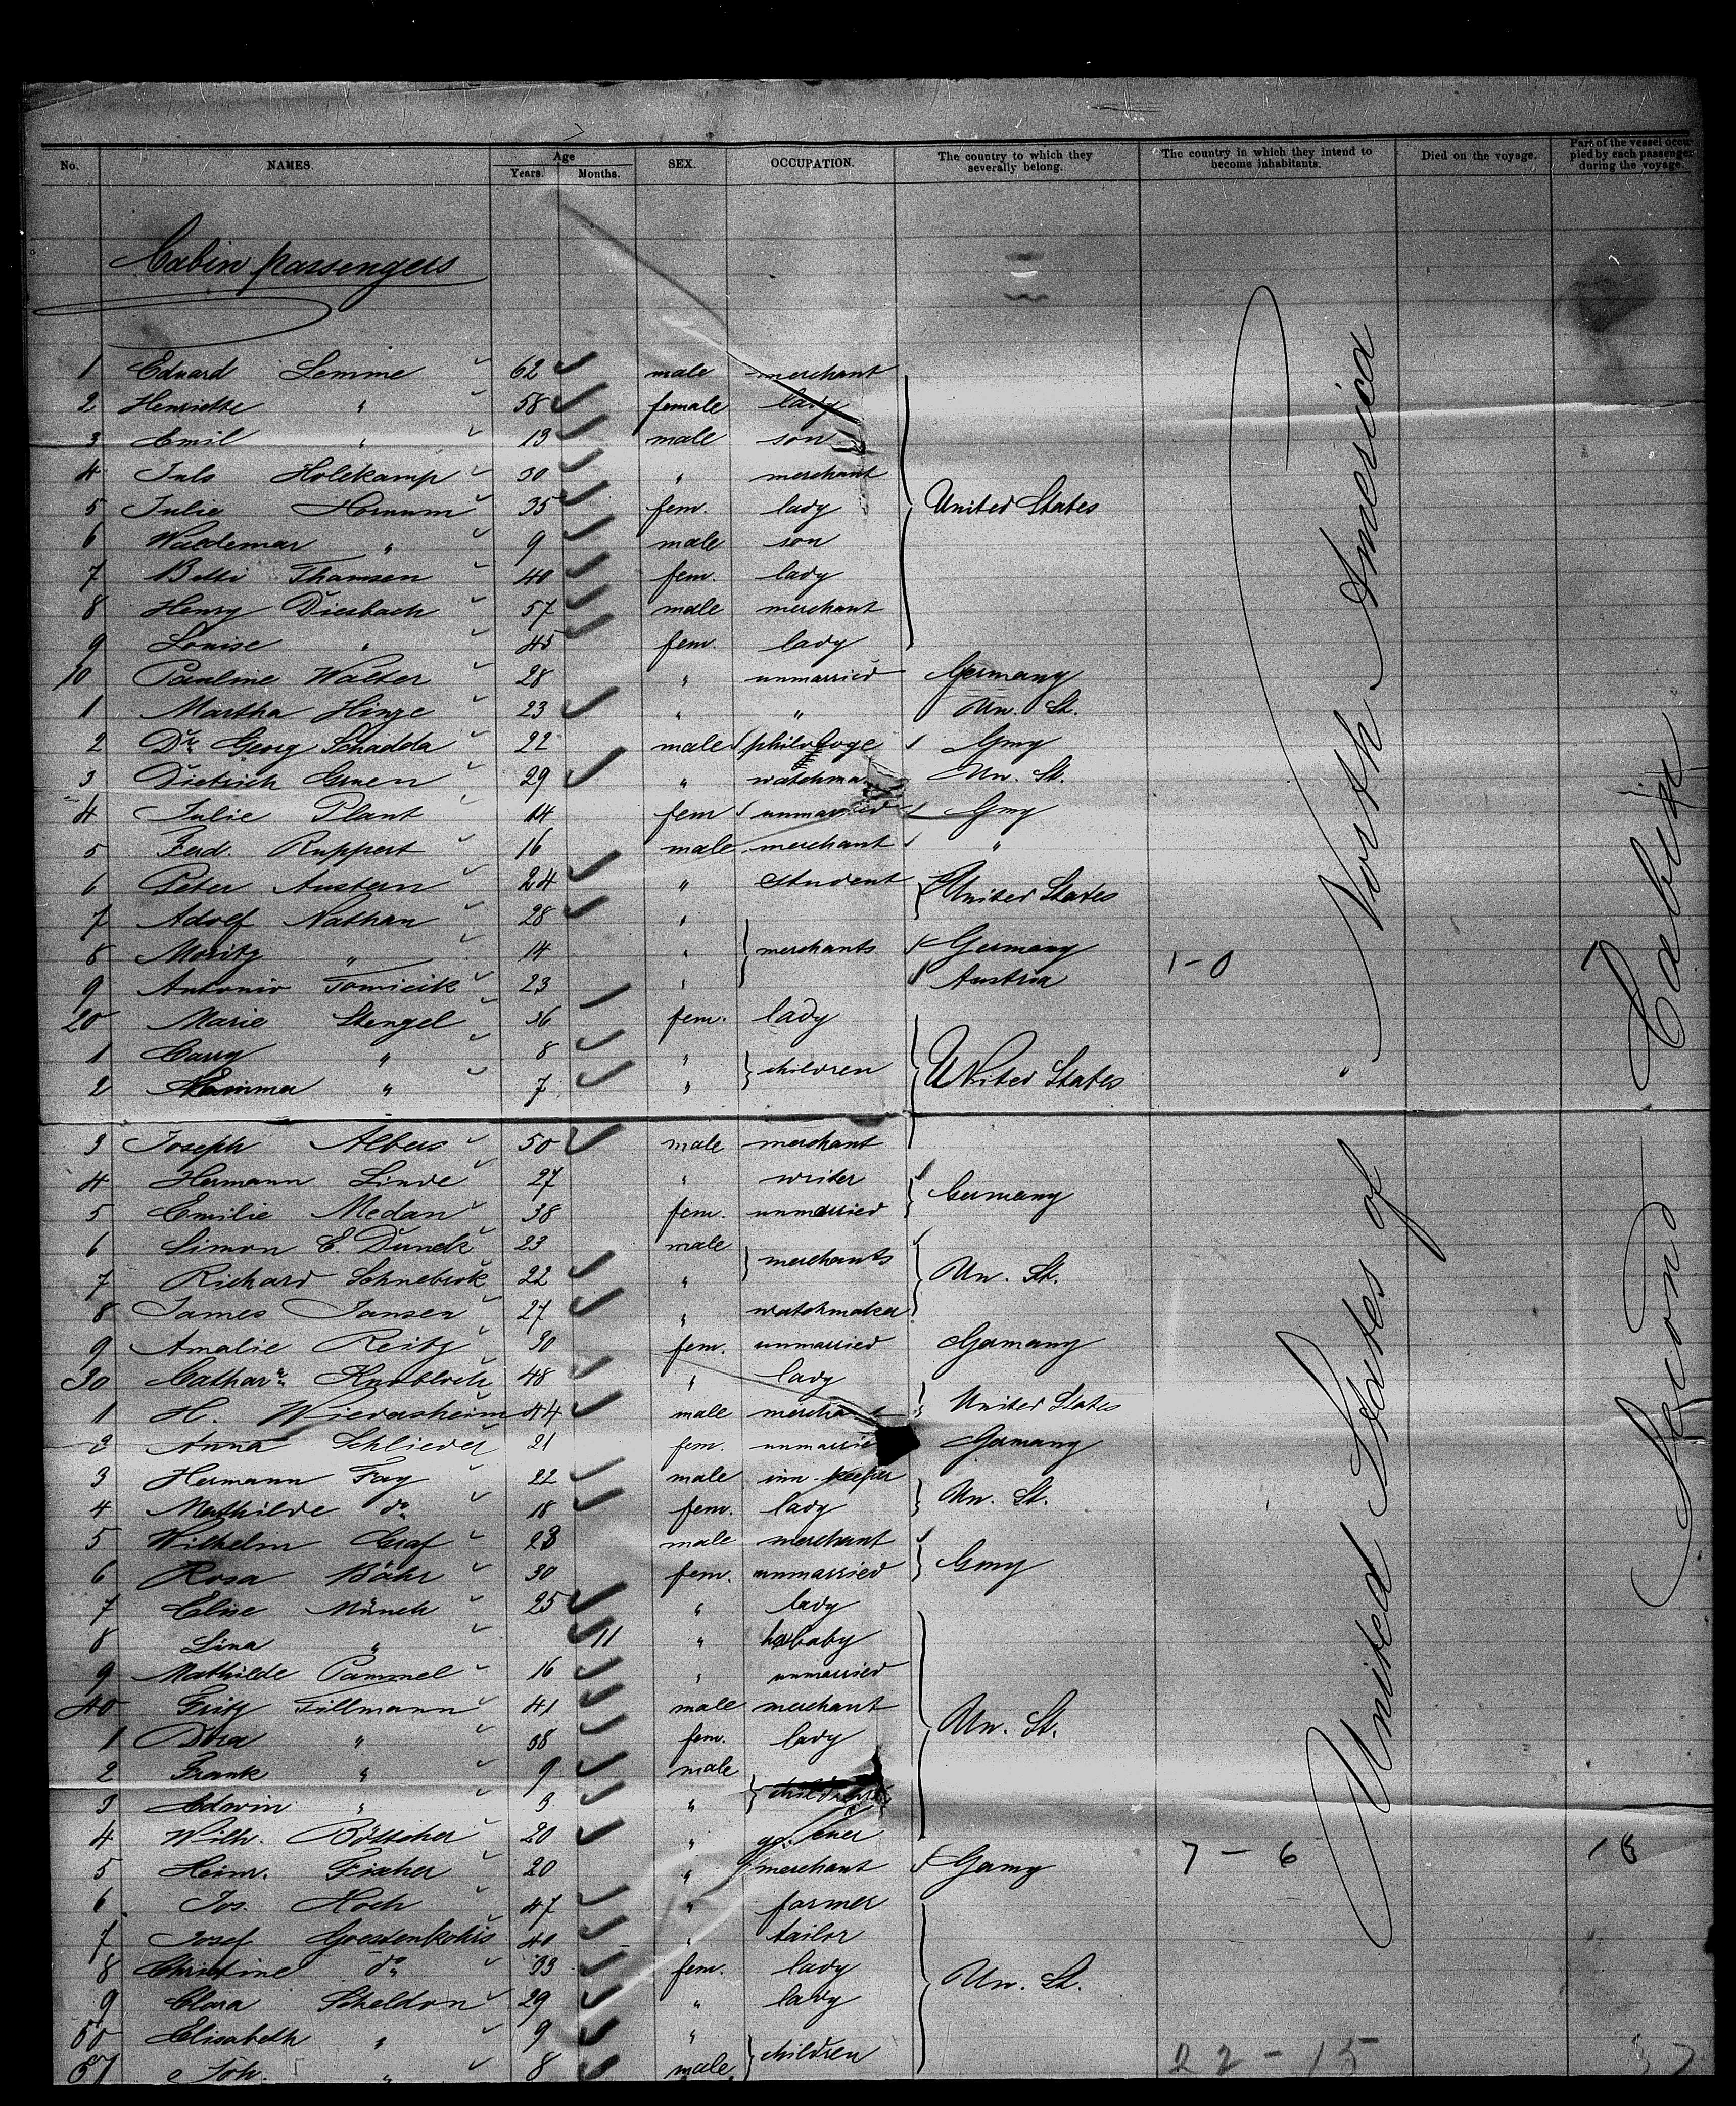 No. NAMES. Age Years. Months. SEX. OCCUPATION. The country to which they severally belong. The country in which they intend to become inhabitants. Died on the voyage. Part of the vessel occupied by each passenger during the voyage.
Cabin passengers
1 Eduard Lemme 62 male merchant
2 Henriette " 58 female lady
3 Emil " 13 male son
4 Juls Holtkamp 30 " merchant
5 Julie 35 fem. lady United States
6 Waldemar " 9 male son
7 Betti Thamsen 40 fem. lady
8 Henry Diesbach 57 male merchant
9 Louise " 45 fem. lady
10 Pauline Walter 28 " unmarried Germany
1 Martha Hinze 23 " " Un. St.
2 Dr Georg Schadda 22 male philologe Gmy
3 Dietrich Gruen 29 " watchma Un. St.
4 Julie Plant 14 fem unmarried Gmy
5 Ferd. Ruppert 16 male merchant "
6 Peter Austern 24 " student United States
7 Adolf Nathan 28 "
8 Moritz " 14 " merchants Germany 1-0
9 Antonio Tomicik 23 " Austria
20 Marie Stengel 36 fem. lady
1 Carry " 8 " children
2 " 7 " United States
3 Joseph Albers 50 male merchant
4 Hermann Linde 27 " writer Germany
5 Emilie Medan 38 fem. unmarried
6 Simon E. Dunck 23 male merchants
7 Richard Schnebrok 22 " Un. St.
8 James Jansen 27 " watchmaker
9 Amalie Reitz 30 fem. unmarried Germany
30 Cathar. Knobloch 48 " lady
1 H. Wiedersheim 44 male mercha United States
2 Anna Schlieder 21 fem. unmarrie Germany
3 Hermann Fay 22 male inn-keeper
4 Mathilde do 18 fem. lady Un. St.
5 Wilhelm Graf 23 male merchant
6 Rosa Bähr 30 fem. unmarried Gmy
7 Elise Münch 25 " lady
8 Lina " 11 " baby
9 Mathilde Pammel 16 " unmarried
40 Fritz Tillmann 41 male merchant Un. St.
1 Dora " 38 fem. lady
2 Frank " 9 male children
3 Edwin " 3 "
4 Wilh. Böttcher 20 "
5 Heinr. Fischer 20 " merchant Gamy 7-6 18
6 Jos. Hoch 47 " farmer
7 Josef 40 " tailor
8 Christine do 33 fem. lady Un. St.
9 Clara Scheldon 29 " lady
50 Elisabeth " 9 " children
51 Joh. " 8 male 22-15 37
United States of North America
Second Cabin